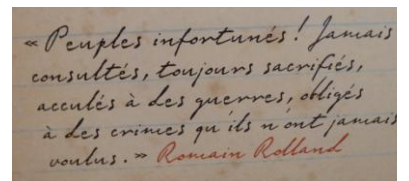 « Peuples infortunés ! Jamais
consultés, toujours sacrifiés,
acculés à des guerres, obligés
à des crimes qu'ils n'ont jamais
voulus. » Romain Rolland